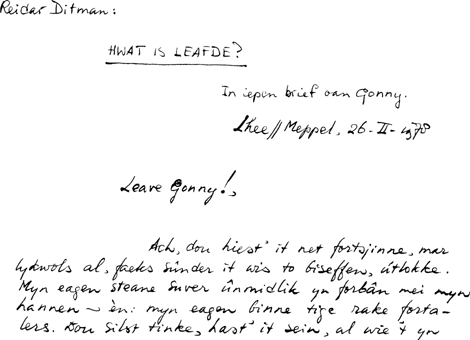 Reidar Ditman:
HWAT IS LEAFDE?
In iepen brief oan Gonny.
Lhee//Meppel, 26-II-1978
Leave Gonny!,
Ach, dou hiest' it net fortsjinne, mar
lykwols al, faeks sûnder it wis to biseffen, útlokke.
Myn eagen steane suver ûnmidlik yn forbân mei myn
hannen - èn: myn eagen binne tige rake forta-
lers. Dou silst tinke, hast' it sein, al wie 't yn